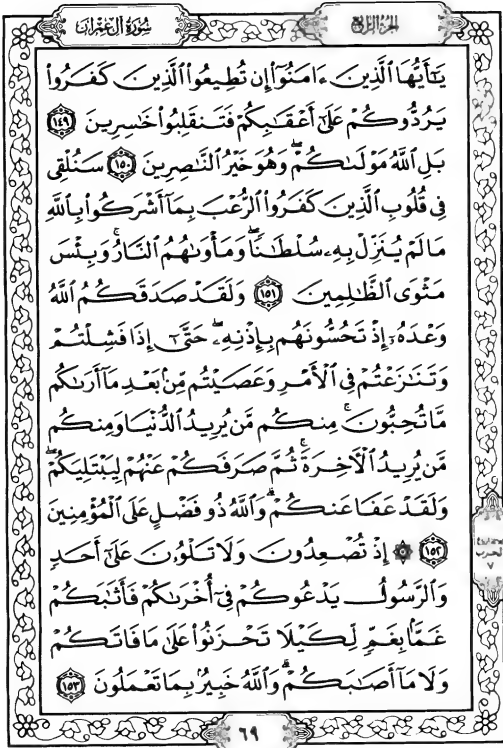 سُورَةُ آلِ عِمْرَان
الجُزْءُ الرَّابِعُ
يَٰٓأَيُّهَا ٱلَّذِينَ ءَامَنُوٓا۟ إِن تُطِيعُوا۟ ٱلَّذِينَ كَفَرُوا۟
يَرُدُّوكُمْ عَلَىٰٓ أَعْقَٰبِكُمْ فَتَنقَلِبُوا۟ خَٰسِرِينَ ١٤٩
بَلِ ٱللَّهُ مَوْلَىٰكُمْ ۖ وَهُوَ خَيْرُ ٱلنَّٰصِرِينَ ١٥٠ سَنُلْقِى
فِى قُلُوبِ ٱلَّذِينَ كَفَرُوا۟ ٱلرُّعْبَ بِمَآ أَشْرَكُوا۟ بِٱللَّهِ
مَا لَمْ يُنَزِّلْ بِهِۦ سُلْطَٰنًا ۖ وَمَأْوَىٰهُمُ ٱلنَّارُ ۚ وَبِئْسَ
مَثْوَى ٱلظَّٰلِمِينَ ١٥١ وَلَقَدْ صَدَقَكُمُ ٱللَّهُ
وَعْدَهُۥٓ إِذْ تَحُسُّونَهُم بِإِذْنِهِۦ ۖ حَتَّىٰٓ إِذَا فَشِلْتُمْ
وَتَنَٰزَعْتُمْ فِى ٱلْأَمْرِ وَعَصَيْتُم مِّنۢ بَعْدِ مَآ أَرَىٰكُم
مَّا تُحِبُّونَ ۚ مِنكُم مَّن يُرِيدُ ٱلدُّنْيَا وَمِنكُم
مَّن يُرِيدُ ٱلْـَٔاخِرَةَ ۚ ثُمَّ صَرَفَكُمْ عَنْهُمْ لِيَبْتَلِيَكُمْ ۖ
وَلَقَدْ عَفَا عَنكُمْ ۗ وَٱللَّهُ ذُو فَضْلٍ عَلَى ٱلْمُؤْمِنِينَ
١٥٢ ۞ إِذْ تُصْعِدُونَ وَلَا تَلْوُۥنَ عَلَىٰٓ أَحَدٍ
وَٱلرَّسُولُ يَدْعُوكُمْ فِىٓ أُخْرَىٰكُمْ فَأَثَٰبَكُمْ
غَمًّۢا بِغَمٍّ لِّكَيْلَا تَحْزَنُوا۟ عَلَىٰ مَا فَاتَكُمْ
وَلَا مَآ أَصَٰبَكُمْ ۗ وَٱللَّهُ خَبِيرٌۢ بِمَا تَعْمَلُونَ ١٥٣
الحزب
٧
٦٩